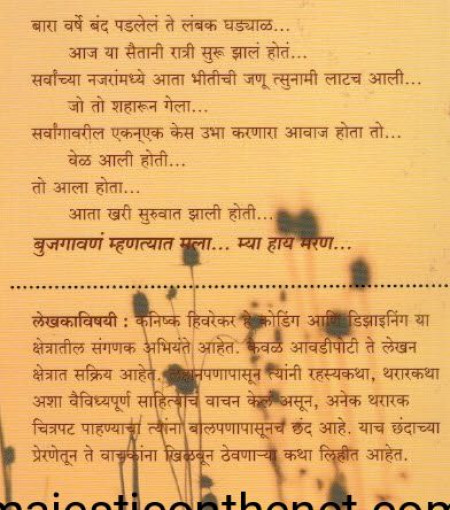 बारा वर्षे बंद पडलेलं ते लंबक घड्याळ...
आज या सैतानी रात्री सुरू झालं होतं...
सर्वांच्या नजरांमध्ये आता भीतीची जणू त्सुनामी लाटच आली...
जो तो शहारून गेला...
सर्वांगावरील एकन्एक केस उभा करणारा आवाज होता तो...
वेळ आली होती...
तो आला होता...
आता खरी सुरुवात झाली होती...
बुजगावणं म्हणत्यात मला... म्या हाय मरण...
लेखकाविषयी : कनिष्क हिवरेकर हे कोडिंग आणि डिझाइनिंग या
क्षेत्रातील संगणक अभियंते आहेत. केवळ आवडीपाटी ते लेखन
क्षेत्रात सक्रिय आहेत. लहानपणापासून त्यांनी रहस्यकथा, थरारकथा
अशा वैविध्यपूर्ण साहित्याचे वाचन केलं असून, अनेक थरारक
चित्रपट पाहण्याचा त्यांना बालपणापासूनच छंद आहे. याच छंदाच्या
प्रेरणेतून ते वाचकांना खिळवून ठेवणाऱ्या कथा लिहीत आहेत.
majesticonthenet.com